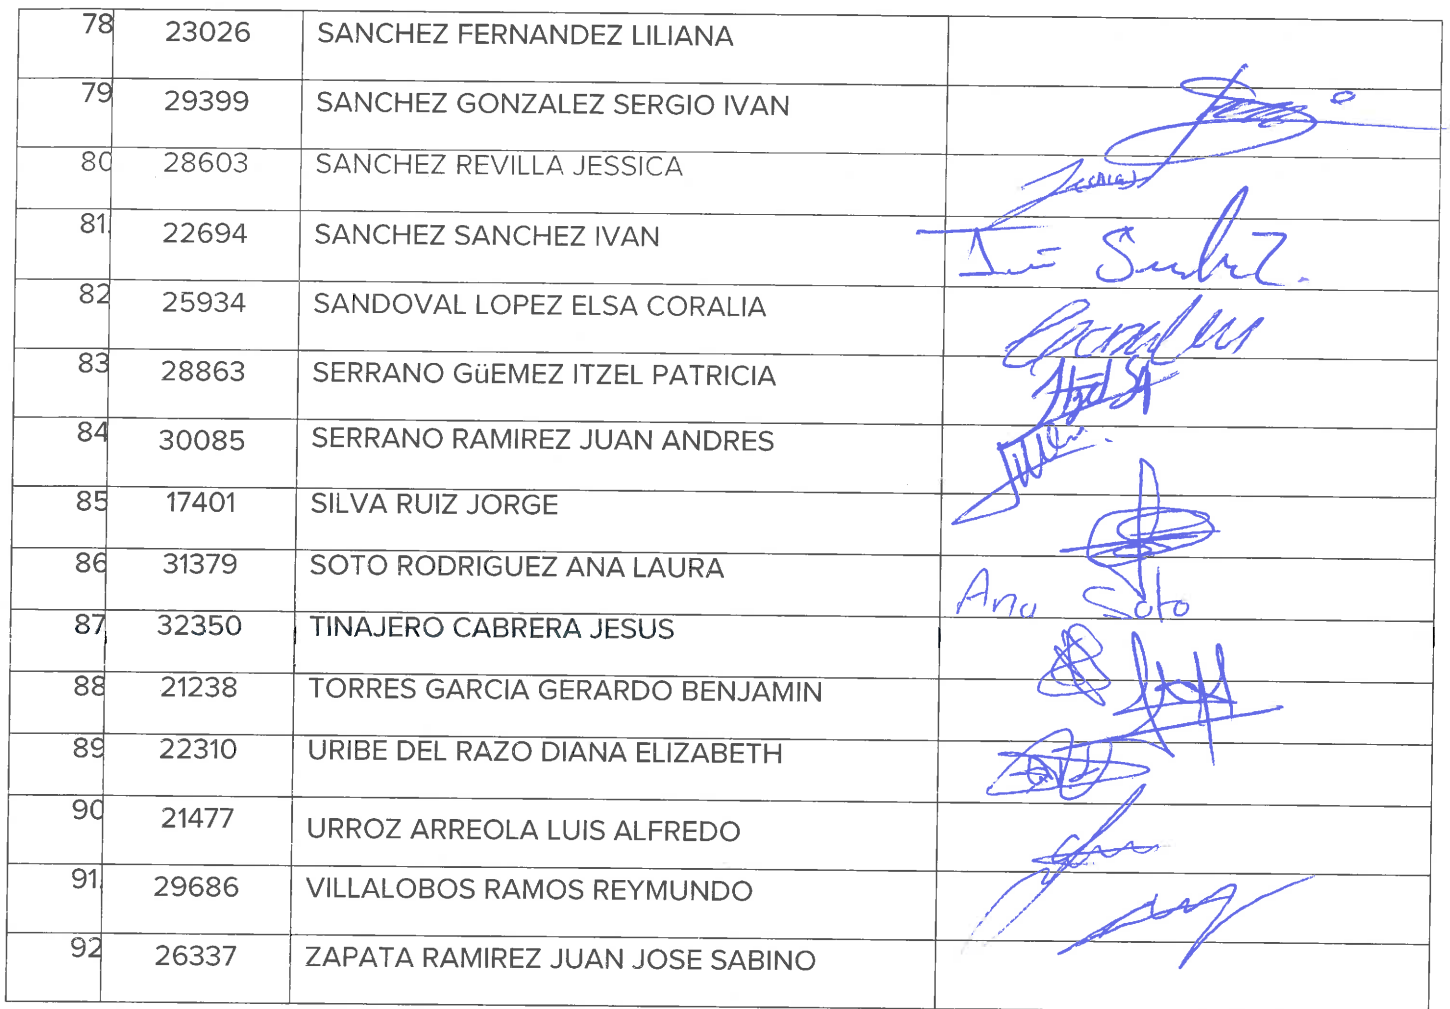 78 23026 SANCHEZ FERNANDEZ LILIANA
79 29399 SANCHEZ GONZALEZ SERGIO IVAN
80 28603 SANCHEZ REVILLA JESSICA
81 22694 SANCHEZ SANCHEZ IVAN
82 25934 SANDOVAL LOPEZ ELSA CORALIA
83 28863 SERRANO GüEMEZ ITZEL PATRICIA
84 30085 SERRANO RAMIREZ JUAN ANDRES
85 17401 SILVA RUIZ JORGE
86 31379 SOTO RODRIGUEZ ANA LAURA Ana Soto
87 32350 TINAJERO CABRERA JESUS
88 21238 TORRES GARCIA GERARDO BENJAMIN
89 22310 URIBE DEL RAZO DIANA ELIZABETH
90 21477 URROZ ARREOLA LUIS ALFREDO
91 29686 VILLALOBOS RAMOS REYMUNDO
92 26337 ZAPATA RAMIREZ JUAN JOSE SABINO